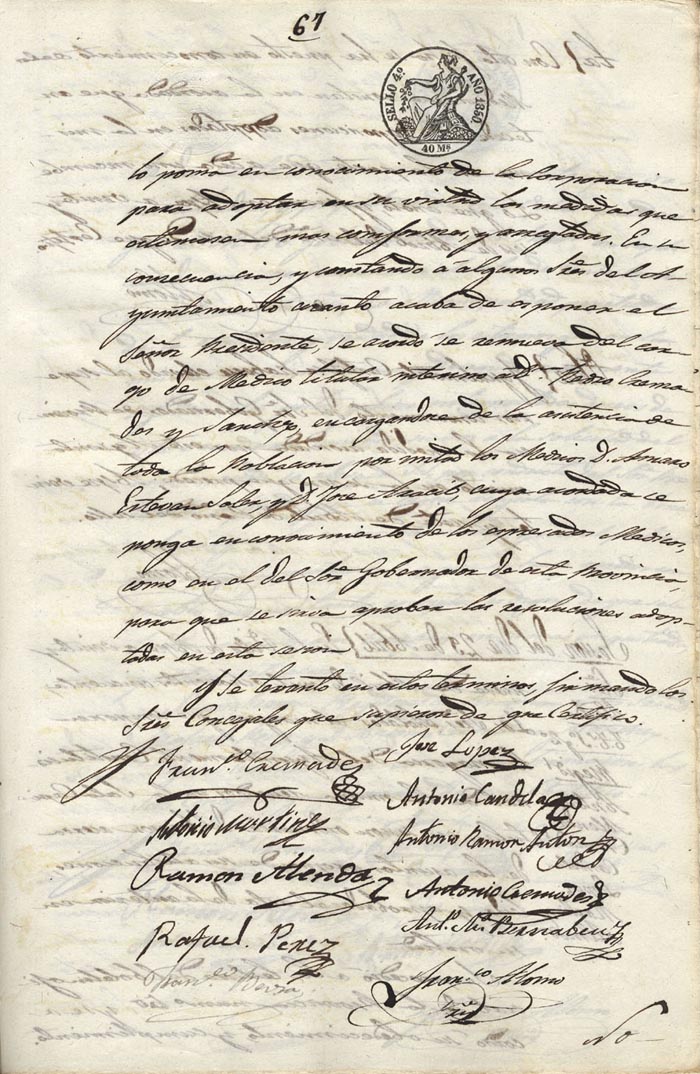 67
SELLO 4º AÑO 1860
40 Ms
lo ponia en conocimiento de la Corporacion
para adoptar en su virtud las medidas que
estimasen mas conformes, y arregladas. En su
consecuencia, y constando á algunos Sres del A-
yuntamiento cuanto acaba de esponer el
Señor Presidente, se acordó se remueva del car-
go de Medico titular interino a Dn. Pedro Crema-
des y Sanchez, encargandose de la asistencia de
toda la Poblacion por mitad los Medicos D. Amaro
Estevan Soler y D. Jose Aracil, cuya acordada se
ponga en conocimiento de los espresados Medicos,
como en el del Sor Gobernador de esta Provincia,
para que se sirva aprobar las resoluciones adop-
tadas en esta sesion
Y se levantó en estos terminos, firmando los
Sres Concejales que supieron de que Certifico.
Franco Cremades
Jose Lopez
Antonio Candela
Antonio Martinez
Antonio Ramon Anton
Ramon
Antonio Cremades
Anto Ma Bernabeu
Rafael Perez
Franco
Franco Alonso
Srio
No